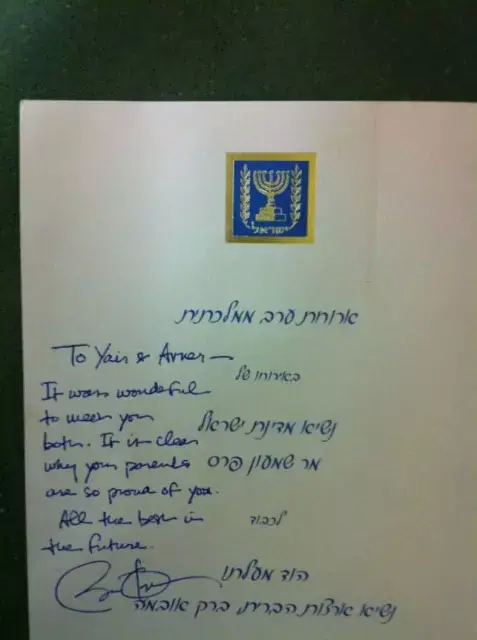 ישראל
ארוחת ערב ממלכתית
To Yair & Avner —
באירוחו של
It was wonderful
to meet you
נשיא מדינת ישראל
both. It is clear
why your parents
מר שמעון פרס
are so proud of you.
All the best in
לכבוד
the future.
הוד מעלתו
נשיא ארצות הברית, ברק אובמה